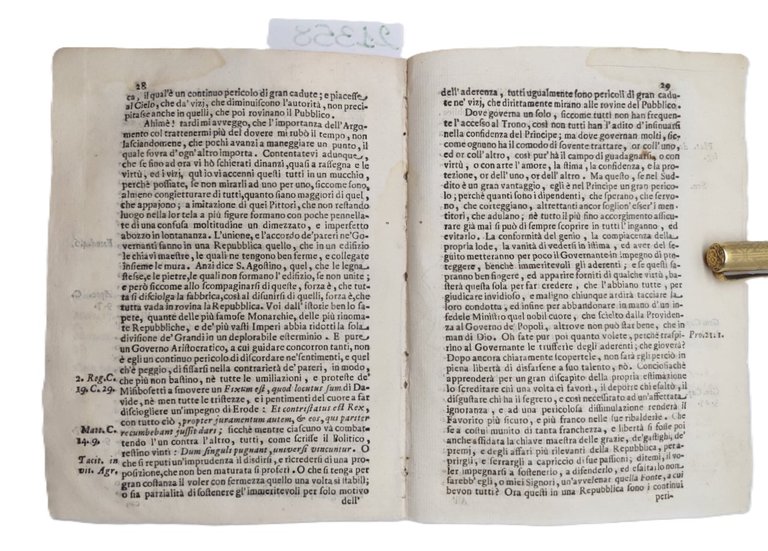 28
ca, il qual'è un continuo pericolo di gran cadute; e piacesse
al Cielo, che da' vizj, che diminuiscono l'autorità, non preci-
pitasse anche in quelli, che poi rovinano il Pubblico.
Ahimè! tardi mi avveggo, che l'importanza dell'Argo-
mento col trattenermi più del dovere mi rubò il tempo, non
lasciandomene, che pochi avanzi a maneggiare un punto, il
quale sovra d'ogn'altro importa. Contentatevi adunque,
che se fino ad ora vi hò schierati dinanzi, quasi a rassegna e le
virtù, ed i vizj, quì io vi accenni questi tutti in un mucchio,
perchè possiate, se non mirarli ad uno per uno, siccome sono,
almeno congietturare di tutti, quanto siano maggiori di quel,
che appajono; a imitazione di quei Pittori, che non restando
luogo nella lor tela a più figure formano con poche pennella-
te di una confusa moltitudine un dimezzato, e imperfetto
abbozzo in lontananza. L'unione, e l'accordo de' pareri ne' Go-
vernanti sanno in una Repubblica quello, che in un edifizio
le chiavi maestre, le quali ne tengono ben ferme, e collegate
insieme le mura. Anzi dice S. Agostino, quel, che le legna
stesse, e le pietre, le quali non formano l'edifizio, se non unite;
e però siccome allo scompaginarsi di queste, forza è, che tut-
ta si disciolga la fabbrica, così al disunirsi di quelli, forza è, che
tutta vada in rovina la Repubblica. Voi dall'istorie ben lo sa-
pete, quante delle più famose Monarchie, delle più rinoma-
te Repubbliche, e de' più vasti Imperi abbia ridotti la sola
divisione de' Grandi in un deplorabile esterminio. E pure
un Governo Aristocratico, a cui guidare concorron tanti, non
è egli un continuo pericolo di discordare ne' sentimenti, e quel
ch'è peggio, di fissarsi nella contrarietà de' pareri, in modo,
2. Reg. C. che più non bastino, nè tutte le umiliazioni, e proteste de'
19. C. 29. Misibosetti a smovere un Fixum est, quod locutus sum di Da-
vide, nè men tutte le tristezze, e i pentimenti del cuore a far
disciogliere un'impegno di Erode: Et contristatus est Rex,
con tutto ciò, propter juramentum autem, & eos, qui pariter
Matt. C. recumbebant jussit dari; sicchè mentre ciascuno va combat-
14. 9. tendo l'un contra l'altro, tutti, come scrisse il Politico,
restino vinti: Dum singuli pugnant, universi vincuntur. O
Tacit. in che si reputi un'imprudenza il disdirsi, e ricredersi di una pro-
vit. Agr. posizione, che non ben maturata si proferì. O che si tenga per
gran costanza il voler con fermezza quello una volta si stabilì;
o sia parzialità di sostenere gl'immeritevoli per solo motivo
dell'
29
dell'aderenza, tutti ugualmente sono pericoli di gran cadu-
te ne' vizj, che dirittamente mirano alle rovine del Pubblico.
Dove governa un solo, siccome tutti non han frequen-
te l'accesso al Trono, così non tutti han l'adito d'insinuarsi
nella confidenza del Principe; ma dove governan molti, sic-
come ognuno ha il comodo di sovente trattare, or coll'uno,
ed or coll'altro, così pur'hà il campo di guadagnarsi, o con
virtù, o con arte l'amore, la stima, la confidenza, e la pro-
tezione, or dell'uno, or dell'altro. Ma questo, se nel Sud-
dito è un gran vantaggio, egli è nel Principe un gran perico-
lo; perchè quanti sono i dipendenti, che sperano, che servo-
no, che corteggiano, altrettanti ancor soglion'esser'i men-
titori, che adulano; nè tutto il più fino accorgimento assicu-
rare già mai si può di sempre scoprire in tutti l'inganno, ed
evitarlo. La conformità del genio, la compiacenza della
propria lode, la vanità di vedersi in istima, ed aver del se-
guito metteranno per poco il Governante in impegno di pro-
teggere, benchè immeritevoli gli aderenti; e se questi sa-
pranno invanghirsi, ed apparire forniti di qualche virtù, ba-
sterà questa sola per far credere, che l'abbiano tutte, per
giudicare invidioso, e maligno chiunque ardirà tacciare la
loro condotta, ed infine per abbandonare in mano d'un in-
fedele Ministro quel nobil cuore, che scielto dalla Providen-
za al Governo de' Popoli, altrove non può star bene, che in
man di Dio. Oh fate pur poi quanto volete, perchè traspi- Pro. 21. 1.
rino al Governante le trufferie degli aderenti; che gioverà?
Dopo ancora chiaramente scopertele, non sarà egli perciò in
piena libertà di disfarsene a suo talento, nò. Conciosiachè
apprenderà per un gran discapito della propria estimazione
lo screditare chi una volta ei favorì, il deporre chi esaltò, il
disgustare chi ha il segreto, e così necessitato ad un'affettata
ignoranza, e ad una pericolosa dissimulazione renderà il
Favorito più sicuro, e più franco nelle sue ribalderie. Che
se a costui munito di tanta franchezza, e libertà si fosse poi
anche affidata la chiave maestra delle grazie, de' gastighi, de'
premj, e degli affari più rilevanti della Repubblica, per a-
prirgli, e serrargli a capriccio di sue passioni; ditemi, il vo-
ler impegnarsi a sostenerlo, a difenderlo, ed esaltarlo non
sarebb'egli, o miei Signori, un'avvelenar quella Fonte, a cui
bevon tutti? Ora questi in una Repubblica sono i continui
peri-